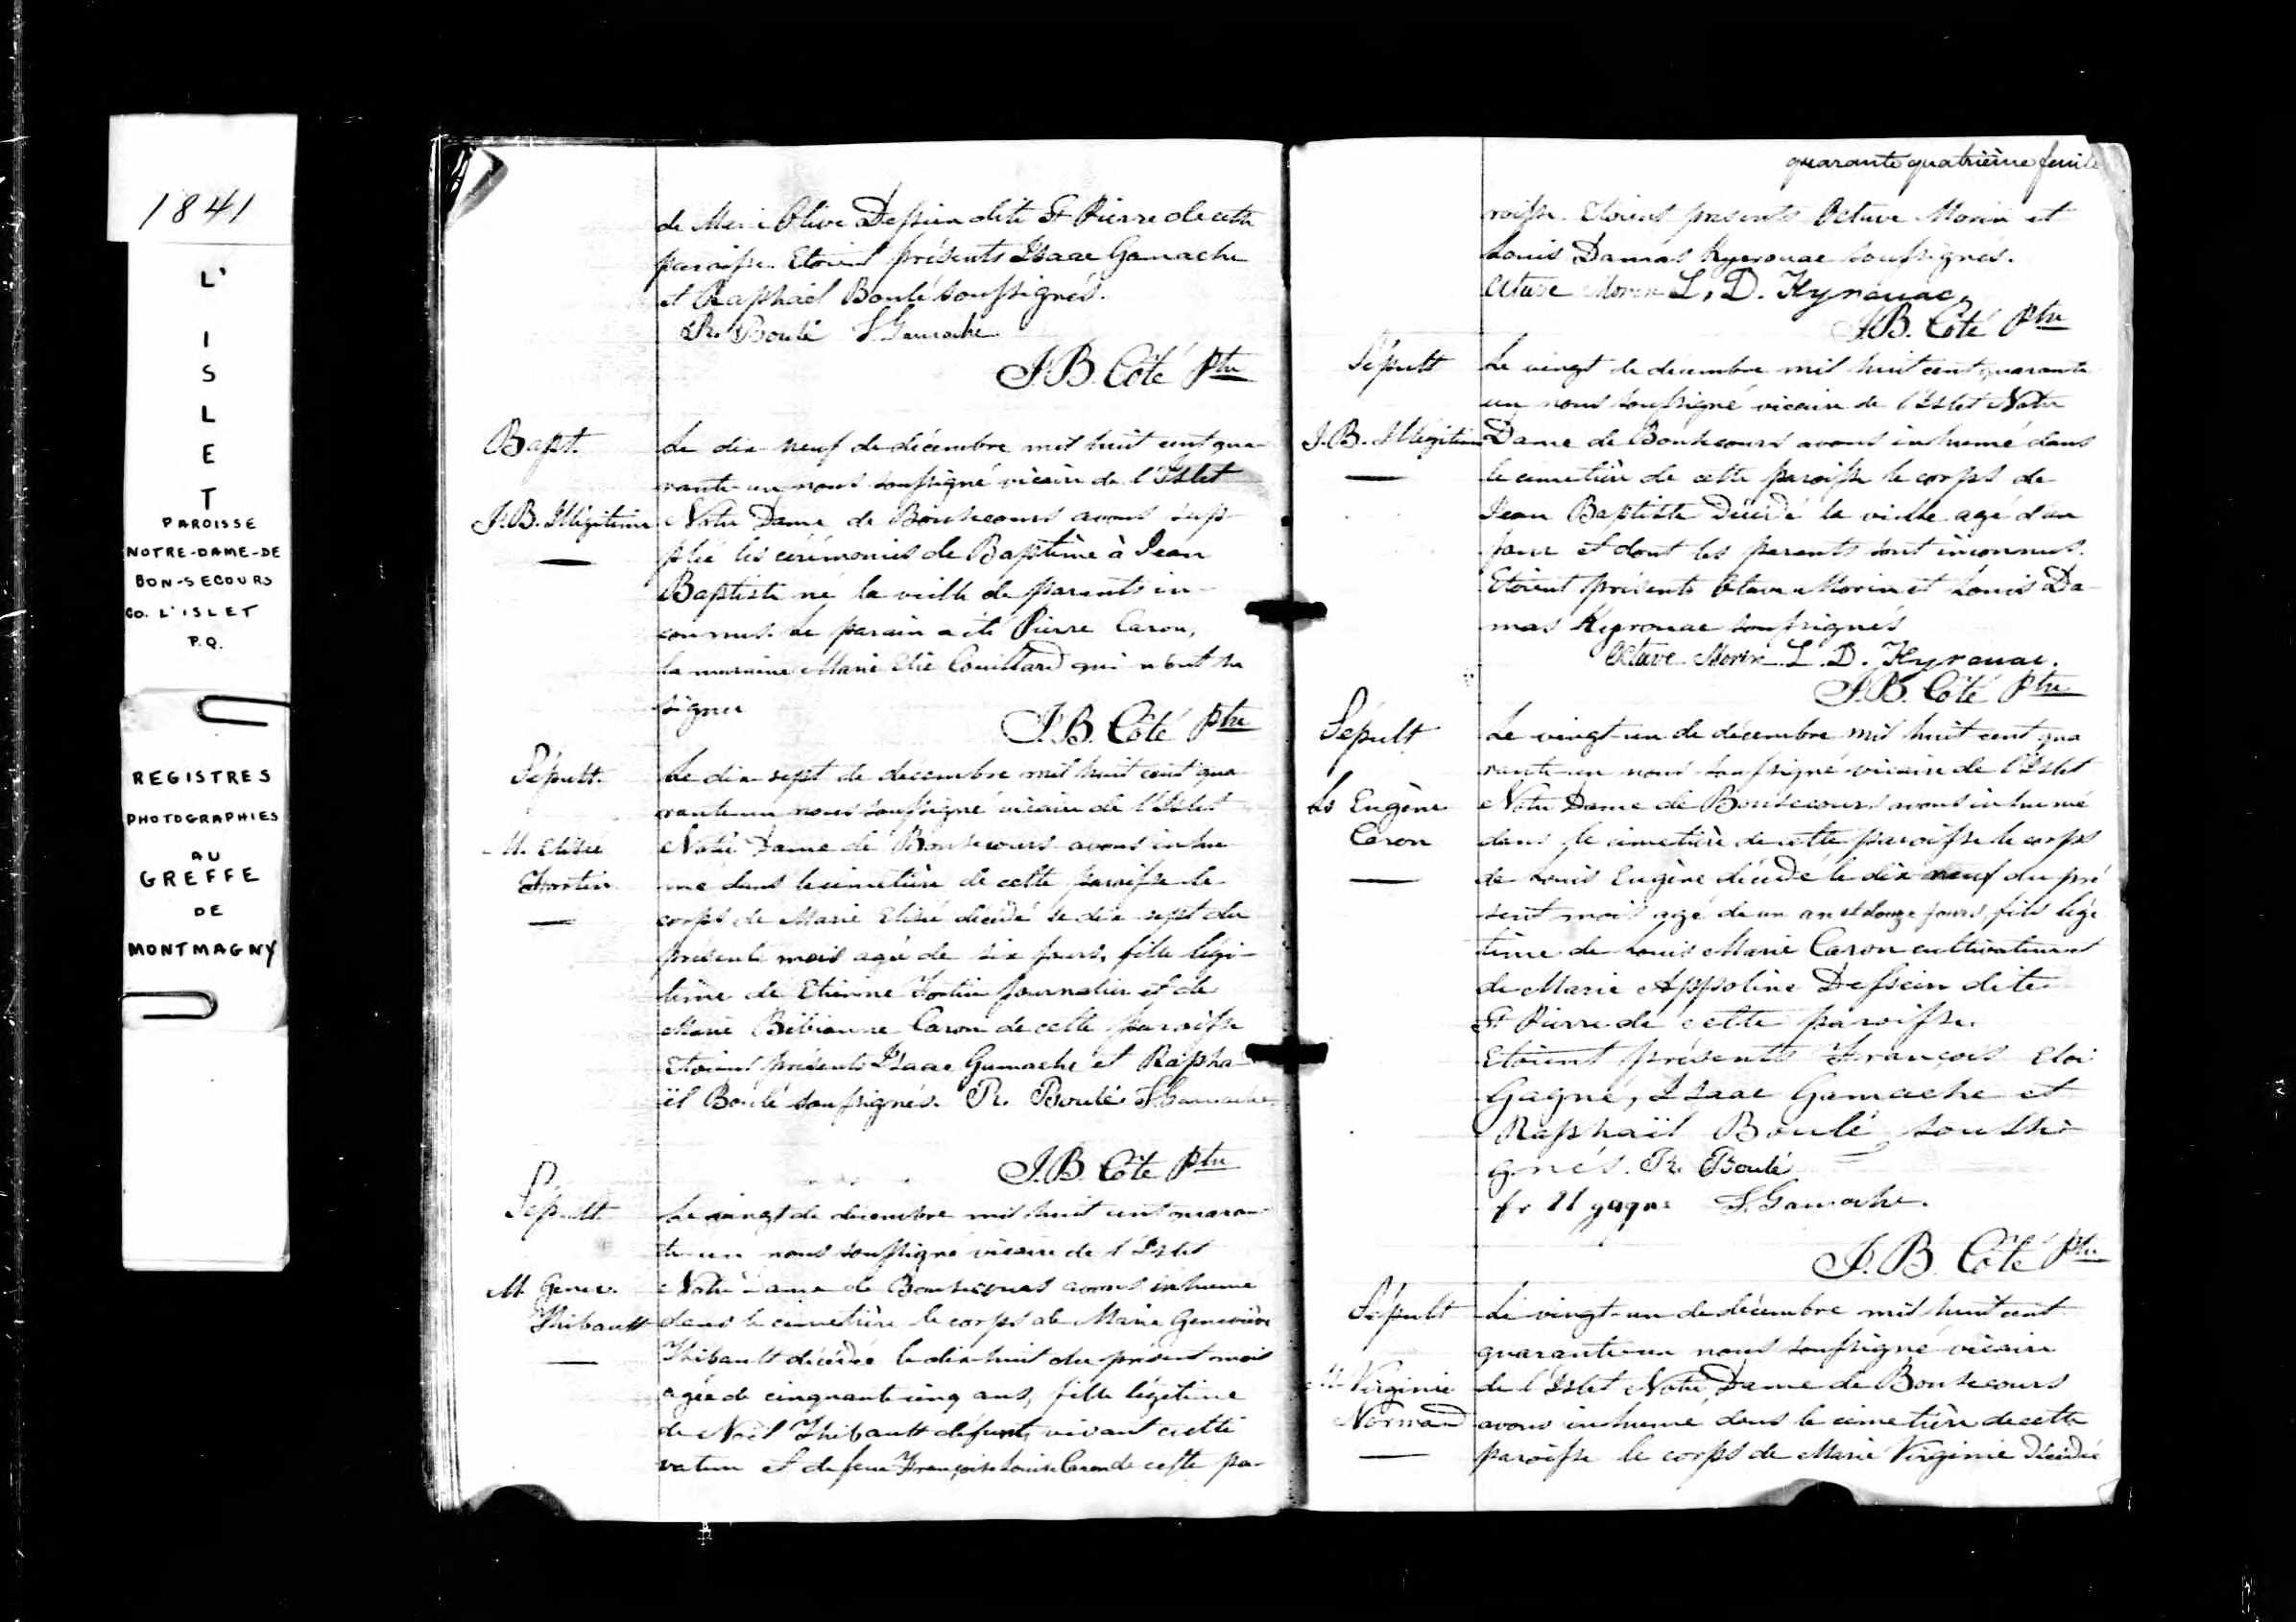 1841
L'
I
S
L
E
T
PAROISSE
NOTRE-DAME-DE
BON-SECOURS
CO. L'ISLET
P.Q.
REGISTRES
PHOTOGRAPHIES
AU
GREFFE
DE
MONTMAGNY
de Marie Olive Dessein dite St Pierre de cette
paroisse. Etoient présents Isaac Gamache
et Raphaël Boulé soussignés.
R. Boulé I. Gamache
J.B. Côté Ptre
Bapt.
J.B. Illégitime
Le dix neuf de décembre mil huit cent qua-
rante un nous soussigné vicaire de l'Islet
Notre Dame de Bonsecours avons sup-
pléé les cérémonies de Baptême à Jean
Baptiste né la veille de parents in-
connus. Le parain a été Pierre Caron,
la maraine Marie Couillard qui n'ont su
signer
J.B. Côté Ptre
Sépult.
M. Elisée
Fortin
Le dix sept de décembre mil huit cent qua
rante un nous soussigné vicaire de l'Islet
Notre Dame de Bonsecours avons inhu-
mé dans le cimetière de cette paroisse le
corps de Marie Elisée décédé le dix sept du
présent mois agée de six jours, fille légi-
time de Etienne Fortin journalier et de
Marie Bibianne Caron de cette paroisse
Etoient présents Isaac Gamache et Rapha-
ël Boulé soussignés. R. Boulé I. Gamache
J.B. Côté Ptre
Sépult
M. Genev.
Thibault
Le vingt de décembre mil huit cent quaran-
te un nous soussigné vicaire de l'Islet
Notre Dame de Bonsecours avons inhumé
dans le cimetière le corps de Marie Geneviève
Thibault décédée le dix-huit du présent mois
agée de cinquante cinq ans, fille légitime
de Noël Thibault défunt, vivant culti
vateur et de feue Françoise Louise Caron de cette pa-
quarante quatrième feuille
roisse. Etoient presents Octave Morin et
Louis Damas Kyrouac soussignés.
Octave Morin L. D. Kyrouac,
J.B. Côté Ptre
Sépult
J.B. Illégitime
Le vingt de décembre mil huit cent quarante
un nous soussigné vicaire de l'Islet Notre
Dame de Bonsecours avons inhumé dans
le cimetière de cette paroisse le corps de
Jean Baptiste Décédé la veille agé d'un
jour et dont les parents sont inconnus.
Etoient présents Octave Morin et Louis Da-
mas Kyrouac soussignés
Octave Morin L. D. Kyrouac.
J.B. Côté Ptre
Sépult
Ls Eugène
Caron
Le vingt-un de décembre mil huit cent qua
rante-un nous soussigné vicaire de l'Islet
Notre Dame de Bonsecours avons inhumé
dans le cimetière de cette paroisse le corps
de Louis Eugène décédé le dix neuf du pré
sent mois agé de un an et douze jours, fils légi
time de Louis Marie Caron cultivateur et
de Marie Appoline Dessein dite
St Pierre de cette paroisse.
Etoient présents François Eloi
Gagné, Isaac Gamache et
Raphaël Boulé soussi-
gnés. R. Boulé
fr El gagné I. Gamache.
J.B. Côté Ptre
Sépult
M. Virginie
Normand
Le vingt-un de décembre mil huit cent
quarante-un nous soussigné vicaire
de l'Islet Notre Dame de Bonsecours
avons inhumé dans le cimetière de cette
paroisse le corps de Marie Virginie Décédée